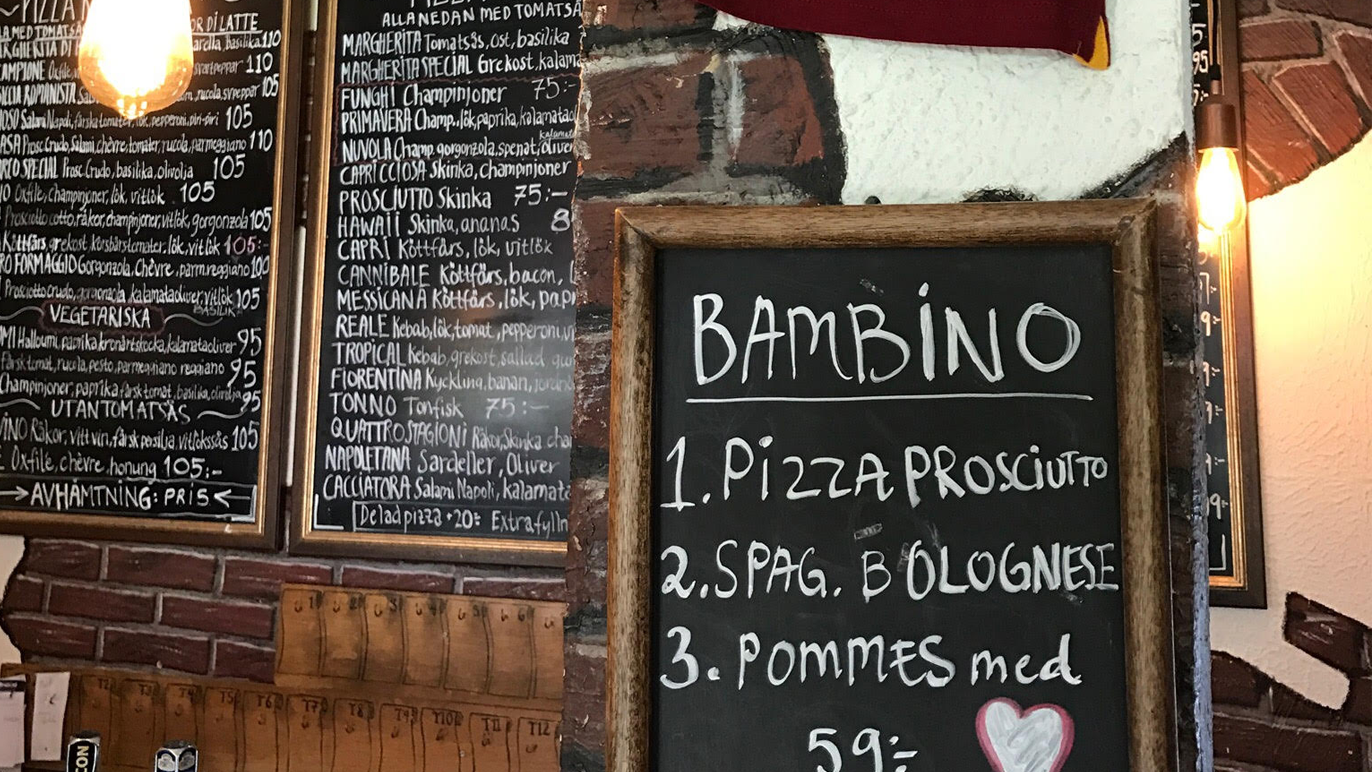 PIZZA
OR DI LATTE
basilika 110
110
rucola, svpeppar 105
Salami Napoli, färska tomater, lök, pepperoni, piri-piri 105
Prosc Crudo, Salami, chèvre, tomater, rucola, parmeggiano 110
SPECIAL Prosc Crudo, basilika, olivolja 105
Oxfile, Champinjoner, lök, vitlök 105
Prosciutto cotto, räkor, champinjoner, vitlök, gorgonzola 105
Köttfärs, grekost, körsbärstomater, lök, vitlök 105:-
FORMAGGIO Gorgonzola, Chèvre, parm.reggiano 100
Prosciutto crudo, gorgonzola, kalamataoliver, vitlök 105
BASILIKA
VEGETARISKA
Halloumi, paprika, kronärtstocka, kalamataoliver 95
Färsk tomat, rucola, pesto, parmeggiano reggiano 95
Champinjoner, paprika, färsk tomat, basilika, olivolja 95
UTAN TOMATSÅS
VINO Räkor, vitt vin, färsk persilja, vitlökssås 105
Oxfile, chèvre, honung 105:-
AVHÄMTNING: PRIS
ALLA NEDAN MED TOMATSÅ
MARGHERITA Tomatsås, ost, basilika
MARGHERITA SPECIAL Grekost, kalama
FUNGHI Champinjoner 75:-
PRIMAVERA Champ., lök, paprika, kalamatao
kalamat
NUVOLA Champ. gorgonzola, spenat, oliver
CAPRICCIOSA Skinka, champinjoner
PROSCIUTTO Skinka 75:-
HAWAII Skinka, ananas 8
CAPRI Köttfärs, lök, vitlök
CANNIBALE Köttfärs, bacon, l
MESSICANA Köttfärs, lök, papr
REALE Kebab, lök, tomat, pepperoni, vi
TROPICAL Kebab, grekost, sallad, gur
FIORENTINA Kyckling, banan, jordnö
TONNO Tonfisk 75:-
QUATTROSTAGIONI Räkor, Skinka, cha
NAPOLETANA Sardeller, Oliver
CACCIATORA Salami Napoli, kalamata
Delad pizza +20:- Extra fylln
BAMBINO
1. PIZZA PROSCIUTTO
2. SPAG. BOLOGNESE
3. POMMES med
59:-
T3 T4 T5 T6 T7 T8 T9 T10 T11 T12